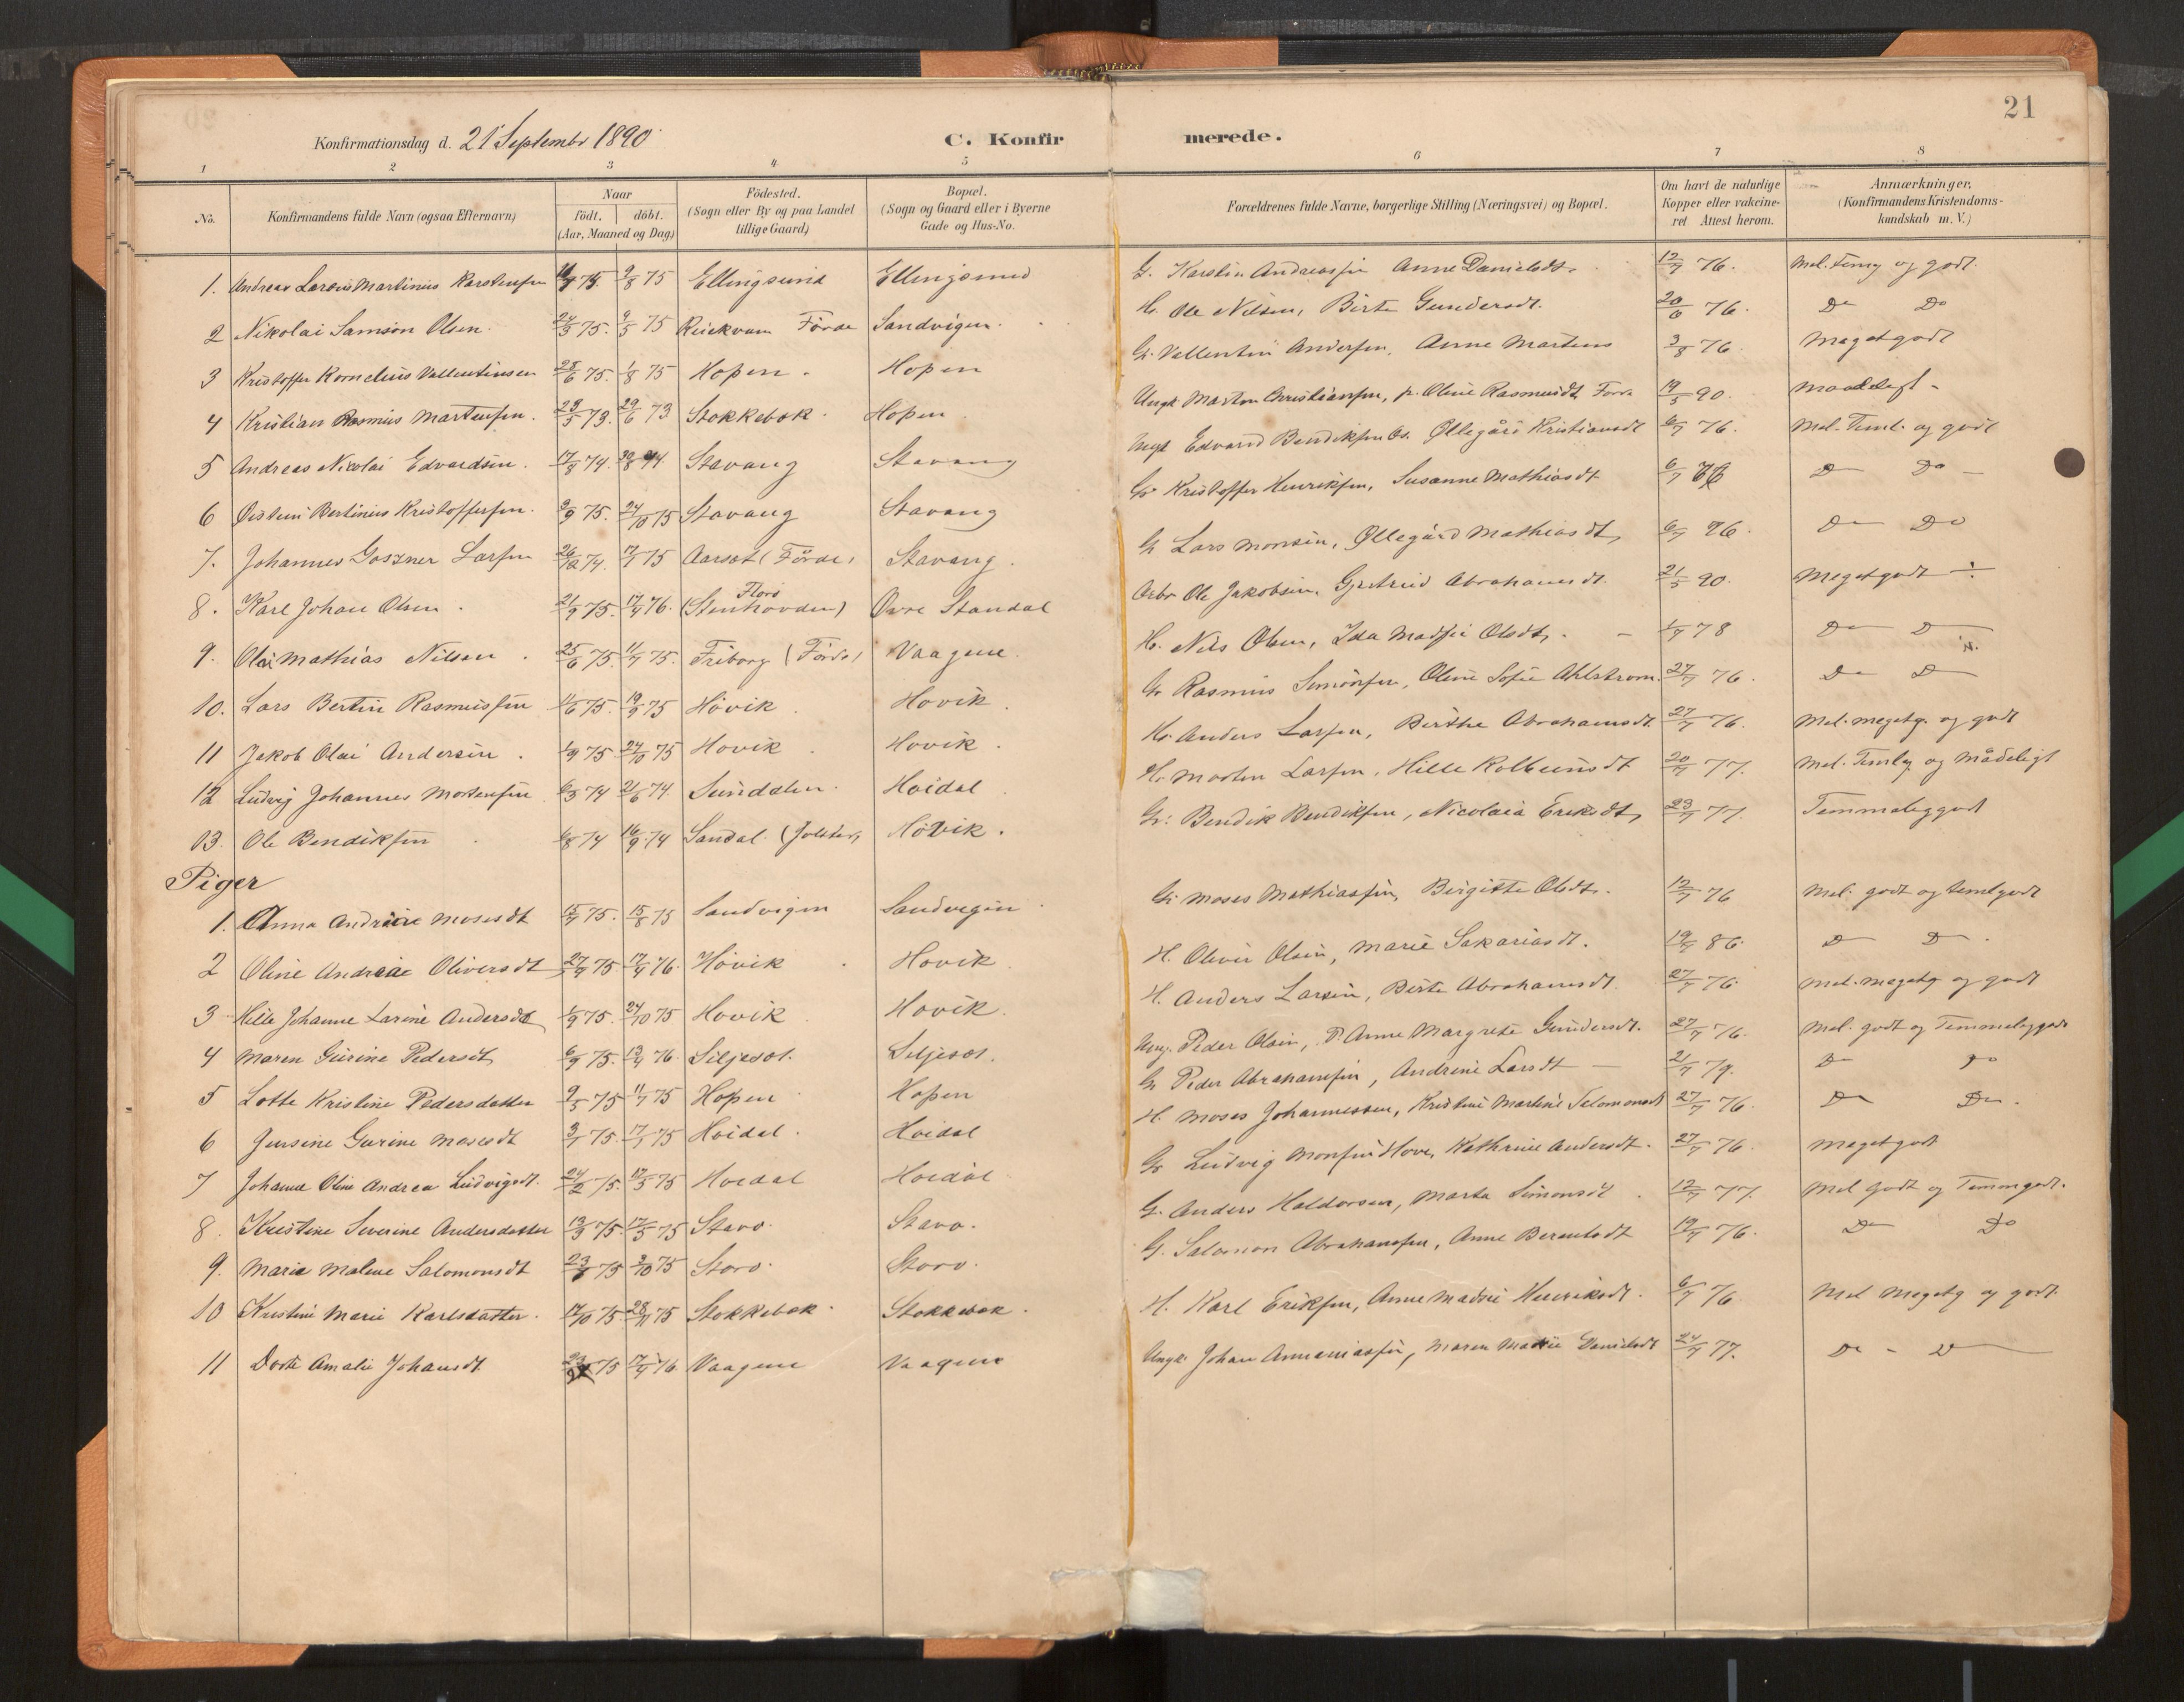 21
Konfirmationsdag d. 21 Septembr 1890
C. Konfir merede.
1 2 3 4 5 6 7 8
No. Konfirmandens fulde Navn (ogsaa Efternavn) Naar födt. döbt. (Aar, Maaned og Dag) Födested. (Sogn eller By og paa Landet tillige Gaard) Bopæl. (Sogn og Gaard eller i Byerne Gade og Hus-No. Forældrenes fulde Navne, borgerlige Stilling (Næringsvei) og Bopæl. Om havt de naturlige Kopper eller vakcineret Attest herom. Anmærkninger, (Konfirmandens Kristendomskundskab m. V.)
1. Andreas Martinius Karstensen 75 9/8 75 Ellingsund Ellingsund G. Karsten Andreassen Anne Danielsdt. 12/7 76. Mel. Temg og godt.
2 Nikolai Samson Olsen. 75. 75 Förde Sandvigen. H. Ole Nilsen, Birte Gundersdt. 20/6 76. Do Do
3 Kristoffer Kornelius Vallentinsen 28/6 75. 1/8 75 Hopen. Hopen G. Vallentin Andersen, Anne Martens 3/8 76 Megetgodt
4 Kristian Rasmus Martensen. 28/5 73. 29/6 73 Stokkebøk. Hopen Ungk Marton Christiansen, p. Oline Rasmusdt 19/5 90. maadeligt -
5 Andreas Nicolai Edvardsen. 17/8 74. Stavang Stavang Ungk Edvard Bendiksen Øllegård Kristiansdt 6/7 76. Mel. Teml. og godt
6 Øistein Bertinius Kristoffersen. 75. 24/10 75 Stavang Stavang Gr Kristoffer Henriksen, Susanne Mathiasdt 6/7 76 Do Do
7. Johannes Gosner Larsen 26/12 74. 17/1 75 Aarset (Förde) Stavang. G Lars Monsen, Øllegård Mathiasdt, 6/7 76. Do Do
8. Karl Johan Olsen. 21/9 75. 17/4 76. (Stenhovden) Florö Övre Standal Arbr Ole Jakobsen, Gjertrud Abrahamsdt. 21/5 90. Megetgodt ÷
9. Olai Mathias Nilsen. 25/6 75. 11/7 75. Friborg (Förde) Vaagene. H. Nils Olsen, Ida Madsie Olsdt. 78 Do D
10. Lars Bertin Rasmussen 11/6 75. 19/9 75 Hövik Hovik. Gr Rasmus Simonsen, Oline Sofie Ahlstrom. 27/7 76. Do D
11 Jakob Olai Andersen. 1/9 75 24/10 75 Hovik Hovik. H. Anders Larsen, Birthe Abrahamsdt. 27/7 76. Mel. megetg. og godt
12 Ludvig Johannes Mortensen 6/3 74 21/6 74. Sunddalen. Hoidal H. Morten Larsen, Hille Kolbeinsdt 20/7 77. Mel. Temlg. og mådeligt
13. Ole Bendiksen 6/8 74 16/9 74 Sandal. (Jolster) Hövik. G. Bendik Bendiksen, Nicolaia Eriksdt, 23/7 77. Temmeliggodt
Piger
1. Anna Andrine Mosesdt 15/7 75. 15/8 75 Sandvigen Sandvigen G. Moses Mathiassen, Birgitte Olsdt. 12/7 76 Mel. godt og temlgodt
2 Oline Andrea Oliversdt 75 17/4 76. Hövik. Hovik H. Oliver Olsen, Marie Sakariasdt. 86. D D.
3 Hille Johanne Larine Andersdt 1/9 75. 24/10 75 Hovik. Hovik. H. Anders Larsen, Birte Abrahamsdt. 27/7 76. mel. megetg og godt
4 Maren Gurine Pedersdt, 6/9 75. 13/4 76. Siljesøl. Seljesøl. Ung. Peder Olsen, P. Anne Margrete Gundersdt. 27/7 76. Mel. godt og Temmeliggodt
5 Lotte Kristine Pedersdatter 9/5 75 11/7 75 Hopen Hopen G Peder Abrahamsen, Andrine Larsdt - 21/7 79. D Do
6 Jensine Gurine Mosesdt 3/1 75. 17/1 75 Hoidal. Hoidal H. Moses Johannessen, Kristine Martine Salomonsdt 27/7 76. Do Do.
7 Johanne Oline Andrea Ludvigsdt. 24/2 75. 17/5 75 Hoidal Hoidal. Gr Ludvig Monsen Hove, Kathrine Andersdt. 27/7 76. Megetgodt
8. Kristine Severine Andersdatter 13/3 75. 17/5 75 Stavo. Stavo. G. Anders Haldorsen, Marta Simonsdt. 12/7 77. Mel godt og Temmgodt.
9. Marie Malene Salomonsdt 75 3/10 75 Storo. Storo. G. Salomon Abrahamsen, Anne Berentsdt 19/7 76. Do Do
10 Kristine Marie Karlsdatter. 17/10 75 28/11 75 Stokkebøk. Stokkebøk. H. Karl Eriksen, Anne Madsie Henriksdt. 6/7 76 Mel Megetg og godt.
11 Dorte Amalie Johansdt. 75 17/4 76 Vaagene Vaagene Ungk. Johan Annaniassen, Maren Danielsdt 24/7 77. Do - D